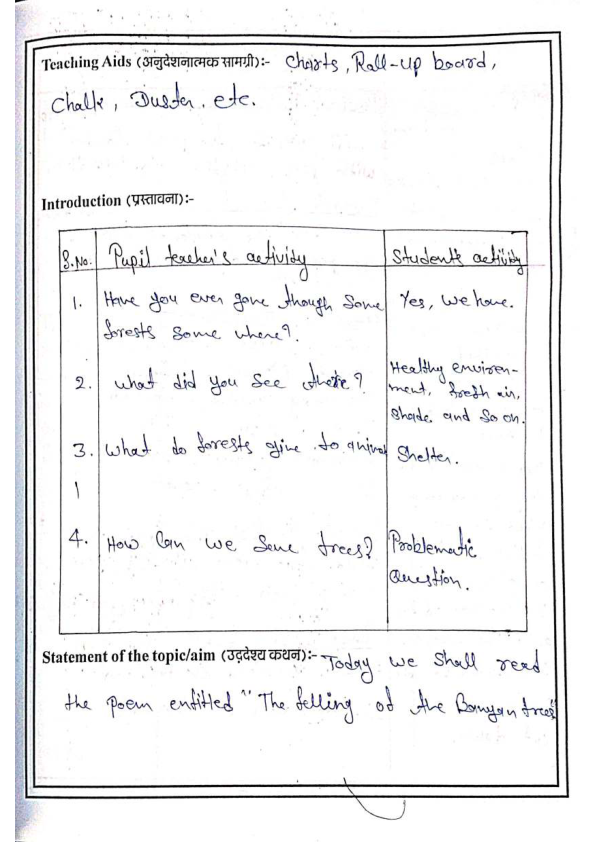 Teaching Aids (अनुदेशनात्मक सामग्री):- Charts, Roll-up board,
Chalk, Duster. etc.
Introduction (प्रस्तावना):-
S.No. Pupil teacher's activity Student's activity
1. Have you ever gone though Some Yes, We have.
forests Some where?
2. what did you See there? Healthy environ-
ment, fresh air,
Shade and So on.
3. What do forests give to animal Shelter.
4. How Can we Save trees? Problematic
Question.
Statement of the topic/aim (उद्देश्य कथन):- Today we Shall read
the poem entitled "The felling of the Banyan trees"